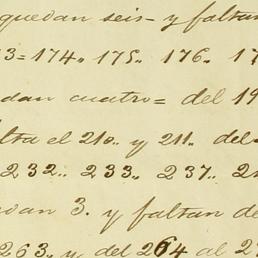 quedan seis - y faltan
3 = 174.. 175.. 176.. 17
dan cuatro = del 19
lta el 210.. y 211.. del
232.. 233.. 237.. 2
dan 3. y faltan de
263.. y del 264 al 27